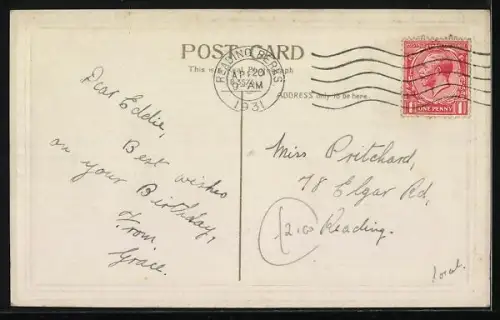 POST CARD
This is a Real Photograph
ADDRESS only to be here.
READING BERKS
AP 20
AM
1931
ONE PENNY
Dear Eddie,
Best wishes
on your Birthday,
From
Grace.
Miss Pritchard,
78 Elgar Rd,
Reading.
2.00
local.